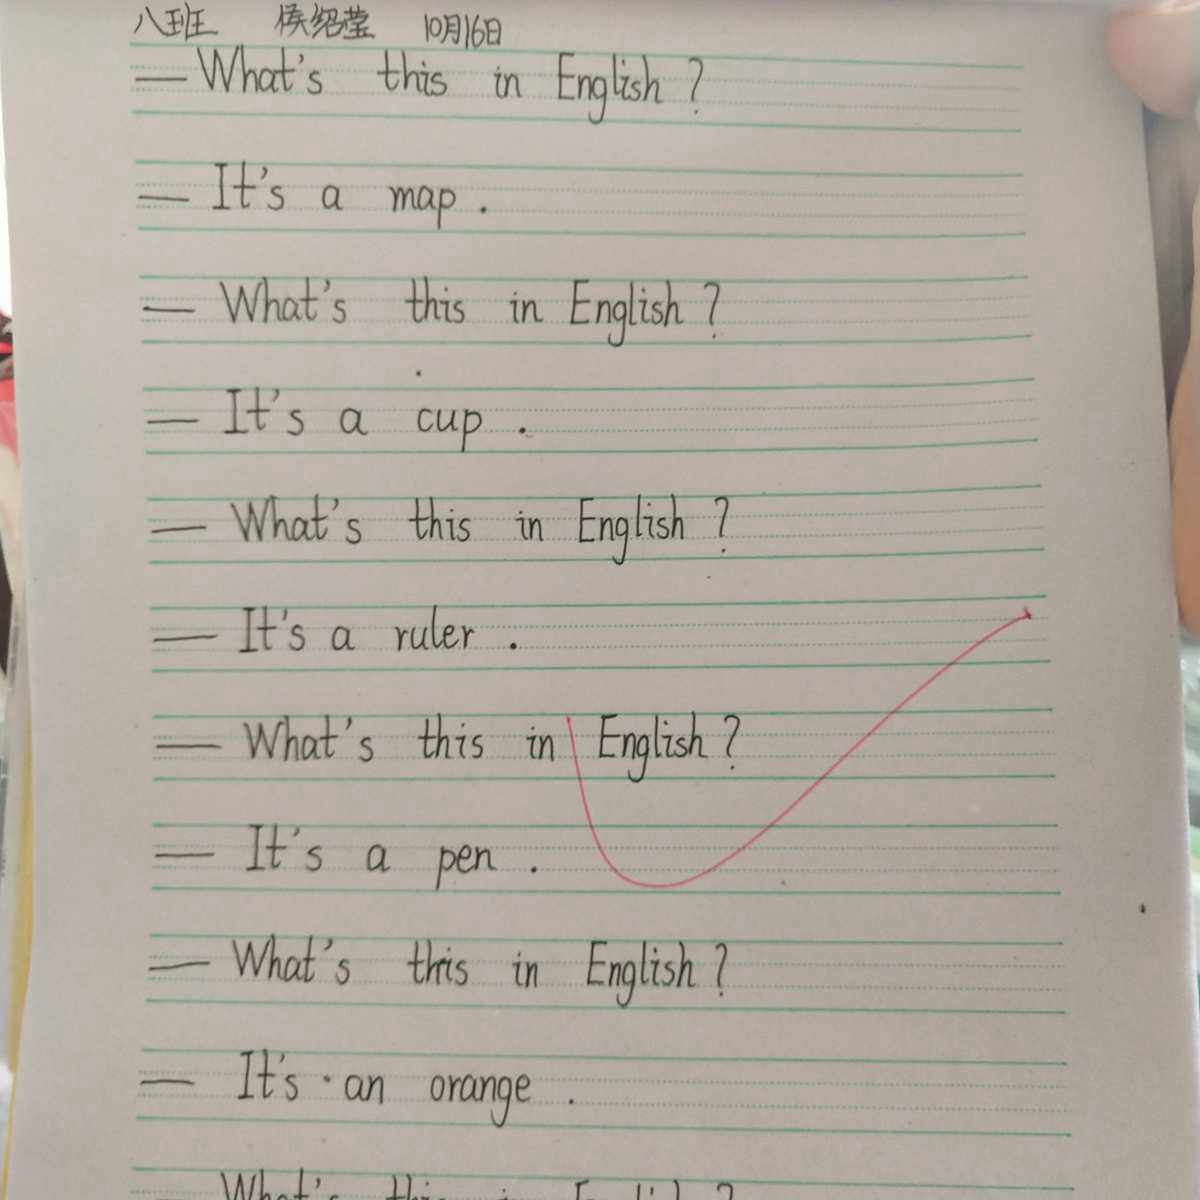 八班 侯绍莹 10月16日
— What's this in English ?
— It's a map .
— What's this in English ?
— It's a cup .
— What's this in English ?
— It's a ruler .
— What's this in English ?
— It's a pen .
— What's this in English ?
— It's an orange .
What's this in English ?